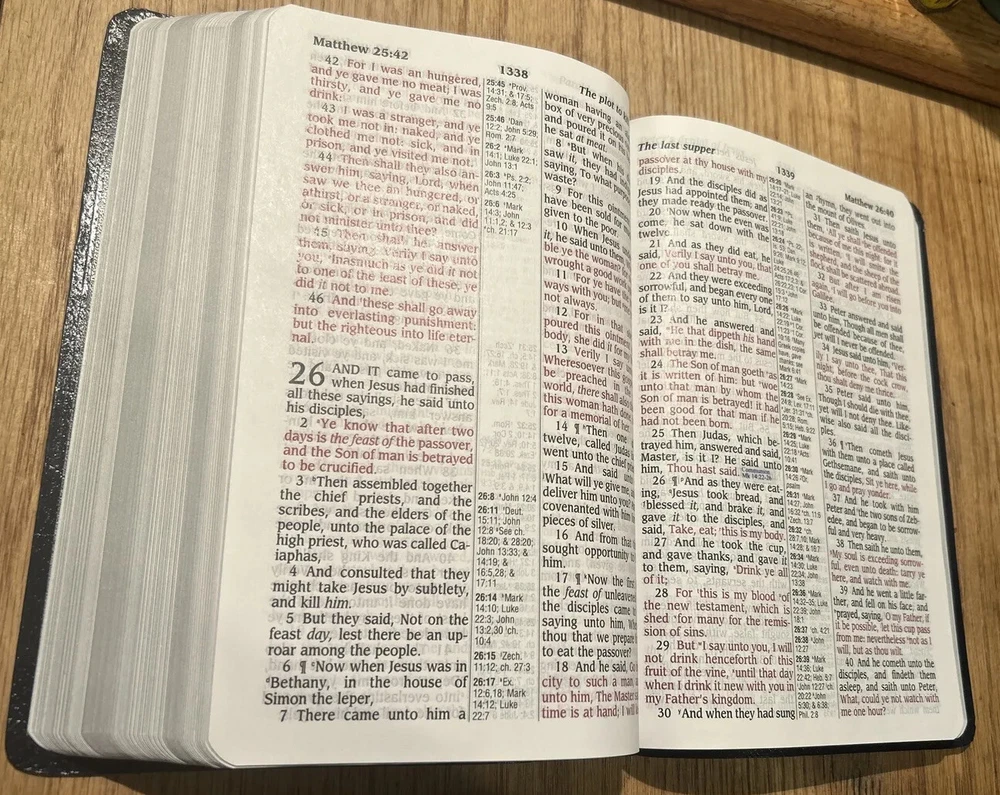 Matthew 25:42
1338
42 For I was an hungered,
and ye gave me no meat; I was
thirsty, and ye gave me no
drink:
43 I was a stranger, and ye
took me not in: naked, and ye
clothed me not: sick, and in
prison, and ye visited me not.
44 Then shall they also an-
swer him, saying, Lord, when
saw we thee an hungered, or
athirst, or a stranger, or naked,
or sick, or in prison, and did
not minister unto thee?
45 Then shall he answer
them, saying, Verily I say unto
you, Inasmuch as ye did it not
to one of the least of these, ye
did it not to me.
46 And these shall go away
into everlasting punishment:
but the righteous into life eter-
nal.
26 AND IT came to pass,
when Jesus had finished
all these sayings, he said unto
his disciples,
2 Ye know that after two
days is the feast of the passover,
and the Son of man is betrayed
to be crucified.
3 Then assembled together
the chief priests, and the
scribes, and the elders of the
people, unto the palace of the
high priest, who was called Ca-
iaphas,
4 And consulted that they
might take Jesus by subtlety,
and kill him.
5 But they said, Not on the
feast day, lest there be an up-
roar among the people.
6 ¶ Now when Jesus was in
Bethany, in the house of
Simon the leper,
7 There came unto him a
25:45 Prov.
14:31; & 17:5;
Zech. 2:8; Acts
9:5
25:46 Dan.
12:2; John 5:29;
Rom. 2:7
26:2 Mark
14:1; Luke 22:1;
John 13:1
26:3 Ps. 2:2;
John 11:47;
Acts 4:25
26:6 Mark
14:3; John
11:1,2, & 12:3
ch. 21:17
26:8 John 12:4
26:11 Deut.
15:11; John
12:8 See ch.
18:20; & 28:20;
John 13:33; &
14:19; &
16:5,28; &
17:11
26:14 Mark
14:10; Luke
22:3; John
13:2,30 ch.
10:4
26:15 Zech.
11:12; ch. 27:3
26:17 Ex.
12:6,18; Mark
14:12; Luke
22:7
The plot to
woman having an
box of very precious
and poured it on
he sat at meat.
8 But when
saw it, they had
saying, To what
waste?
9 For this ointment
have been sold for
given to the poor.
10 When Jesus
it, he said unto them
ble ye the woman? for
wrought a good
11 For ye have
ways with you; but
not always.
12 For in that
poured this ointment
body, she did it for
13 Verily I say
Wheresoever this
be preached in
world, there shall also
this woman hath done
for a memorial of her
14 ¶ Then one
twelve, called Judas
went unto the chief
15 And said unto
What will ye give me,
deliver him unto
covenanted with him
pieces of silver.
16 And from that
sought opportunity
him.
17 ¶ Now the first
the feast of unleavened
the disciples came
saying unto him,
thou that we prepare
to eat the passover?
18 And he said, Go
city to such a man
unto him, The Master
time is at hand; I will
The last supper
1339
Matthew 26:40
passover at thy house with my
disciples.
19 And the disciples did as
Jesus had appointed them; and
they made ready the passover.
20 Now when the even was
come, he sat down with the
twelve.
21 And as they did eat, he
said, Verily I say unto you, that
one of you shall betray me.
22 And they were exceeding
sorrowful, and began every one
of them to say unto him, Lord,
is it I?
23 And he answered and
said, He that dippeth his hand
with me in the dish, the same
shall betray me.
24 The Son of man goeth as
it is written of him: but woe
unto that man by whom the
Son of man is betrayed! it had
been good for that man if he
had not been born.
25 Then Judas, which be-
trayed him, answered and said,
Master, is it I? He said unto
him, Thou hast said.
26 ¶ And as they were eat-
ing, Jesus took bread, and
blessed it, and brake it, and
gave it to the disciples, and
said, Take, eat; this is my body.
27 And he took the cup,
and gave thanks, and gave it
to them, saying, Drink ye all
of it;
28 For this is my blood of
the new testament, which is
shed for many for the remis-
sion of sins.
29 But I say unto you, I will
not drink henceforth of this
fruit of the vine, until that day
when I drink it new with you in
my Father's kingdom.
30 And when they had sung
an hymn, they went out into
the mount of Olives.
31 Then saith Jesus unto
them, All ye shall be offended
because of me this night: for it
is written, I will smite the
shepherd, and the sheep of the
flock shall be scattered abroad.
32 But after I am risen
again, I will go before you into
Galilee.
33 Peter answered and said
unto him, Though all men shall
be offended because of thee,
yet will I never be offended.
34 Jesus said unto him, Ver-
ily I say unto thee, That this
night, before the cock crow,
thou shalt deny me thrice.
35 Peter said unto him,
Though I should die with thee,
yet will I not deny thee. Like-
wise also said all the disci-
ples.
36 ¶ Then cometh Jesus
with them unto a place called
Gethsemane, and saith unto
the disciples, Sit ye here, while
I go and pray yonder.
37 And he took with him
Peter and the two sons of Zeb-
edee, and began to be sorrow-
ful and very heavy.
38 Then saith he unto them,
My soul is exceeding sorrow-
ful, even unto death: tarry ye
here, and watch with me.
39 And he went a little far-
ther, and fell on his face, and
prayed, saying, O my Father, if
it be possible, let this cup pass
from me: nevertheless not as I
will, but as thou wilt.
40 And he cometh unto the
disciples, and findeth them
asleep, and saith unto Peter,
What, could ye not watch with
me one hour?